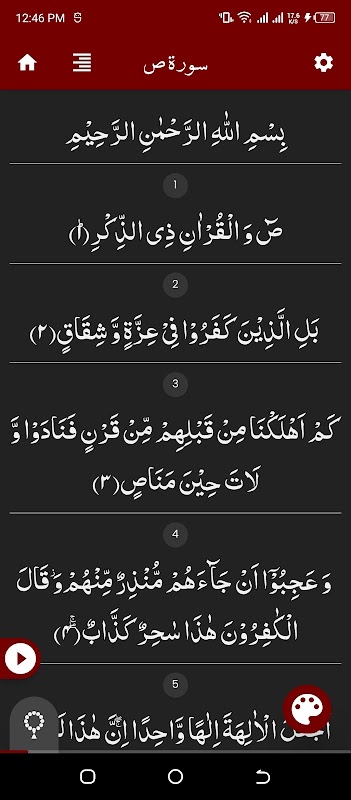 12:46 PM
17.6
K/S
77
سورة ص
بِسْمِ اللهِ الرَّحْمٰنِ الرَّحِيْمِ
1
صٓ وَ الْقُرْاٰنِ ذِی الذِّكْرِؕ(۱)
2
بَلِ الَّذِیْنَ كَفَرُوْا فِیْ عِزَّةٍ وَّ شِقَاقٍ(۲)
3
كَمْ اَهْلَكْنَا مِنْ قَبْلِهِمْ مِّنْ قَرْنٍ فَنَادَوْا وَّ
لَاتَ حِیْنَ مَنَاصٍ(۳)
4
وَ عَجِبُوْۤا اَنْ جَآءَهُمْ مُّنْذِرٌ مِّنْهُمْ٘-وَ قَالَ
الْكٰفِرُوْنَ هٰذَا سٰحِرٌ كَذَّابٌۖۚ(۴)
5
الْاٰلِهَةَ اِلٰهًا وَّاحِدًا ۚۖ اِنَّ هٰذَا